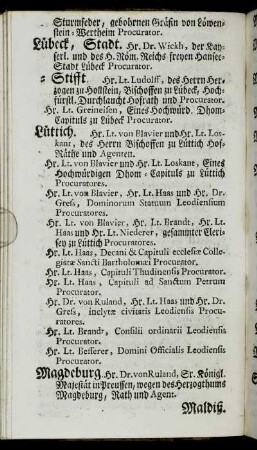 Sturmfeder, gebohrnen Gräfin von Löwen-
stein-Wertheim Procurator.
Lübeck, Stadt. Hr. Dr. Wickh, der Kay-
serl. und des H. Röm. Reichs freyen Hansee-
Stadt Lübeck Procurator.
= Stifft. Hr. Lt. Ludolff, des Herrn Her-
zogen zu Hollstein, Bischoffen zu Lübeck, Hoch-
fürstl. Durchlaucht Hofrath und Procurator.
Hr. Lt. Greineisen, Eines Hochwürd. Dhom-
Capituls zu Lübeck Procurator.
Lüttich. Hr. Lt. von Blavier und Hr. Lt. Los-
kant, des Herrn Bischoffen zu Lüttich Hof-
Räthe und Agenten.
Hr. Lt. von Blavier und Hr. Lt. Loskant, Eines
Hochwürdigen Dhom-Capituls zu Lüttich
Procuratores.
Hr. Lt. von Blavier, Hr. Lt. Haas und Hr. Dr.
Gres, Dominorum Statuum Leodiensium
Procuratores.
Hr. Lt. von Blavier, Hr. Lt. Brandt, Hr. Lt.
Haas und Hr. Lt. Niederer, gesammter Cleri-
sey zu Lüttich Procuratores.
Hr. Lt. Haas, Decani & Capituli ecclesiæ Colle-
giatæ Sancti Bartholomæi Procurator.
Hr. Lt. Haas, Capituli Thudinensis Procurator.
Hr. Lt. Haas, Capituli ad Sanctum Petrum
Procurator.
Hr. Dr. von Ruland, Hr. Lt. Haas und Hr. Dr.
Gres, inclytæ civitatis Leodiensis Procu-
ratores.
Hr. Lt. Brandt, Consilii ordinarii Leodiensis
Procurator.
Hr. Lt. Besserer, Domini Officialis Leodiensis
Procurator.
Magdeburg. Hr. Dr. von Ruland, Sr. Königl.
Majestät in Preussen, wegen des Herzogthums
Magdeburg, Rath und Agent.
Maldiß.